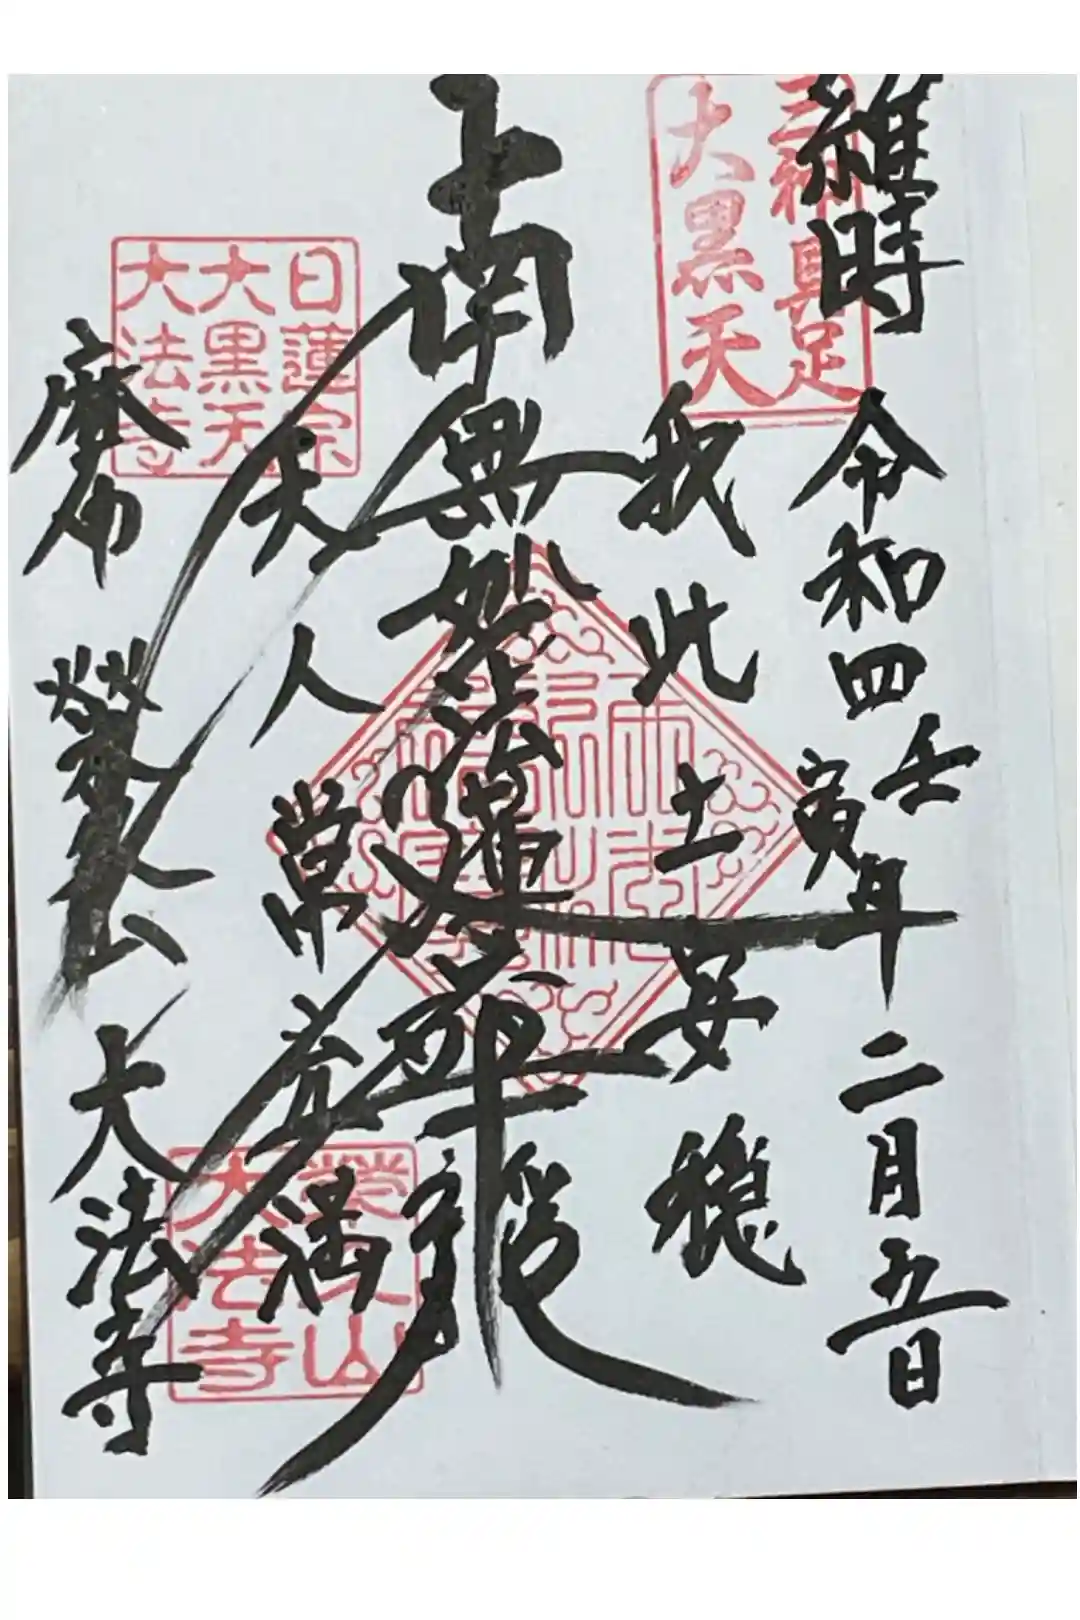 維時 令和四壬寅年二月五日
我此土安穏
南無妙法蓮華経
天人常充満
麻布 栄久山 大法寺
三神具足
大黒天
日蓮宗
大黒天
大法寺
栄久山
大法寺